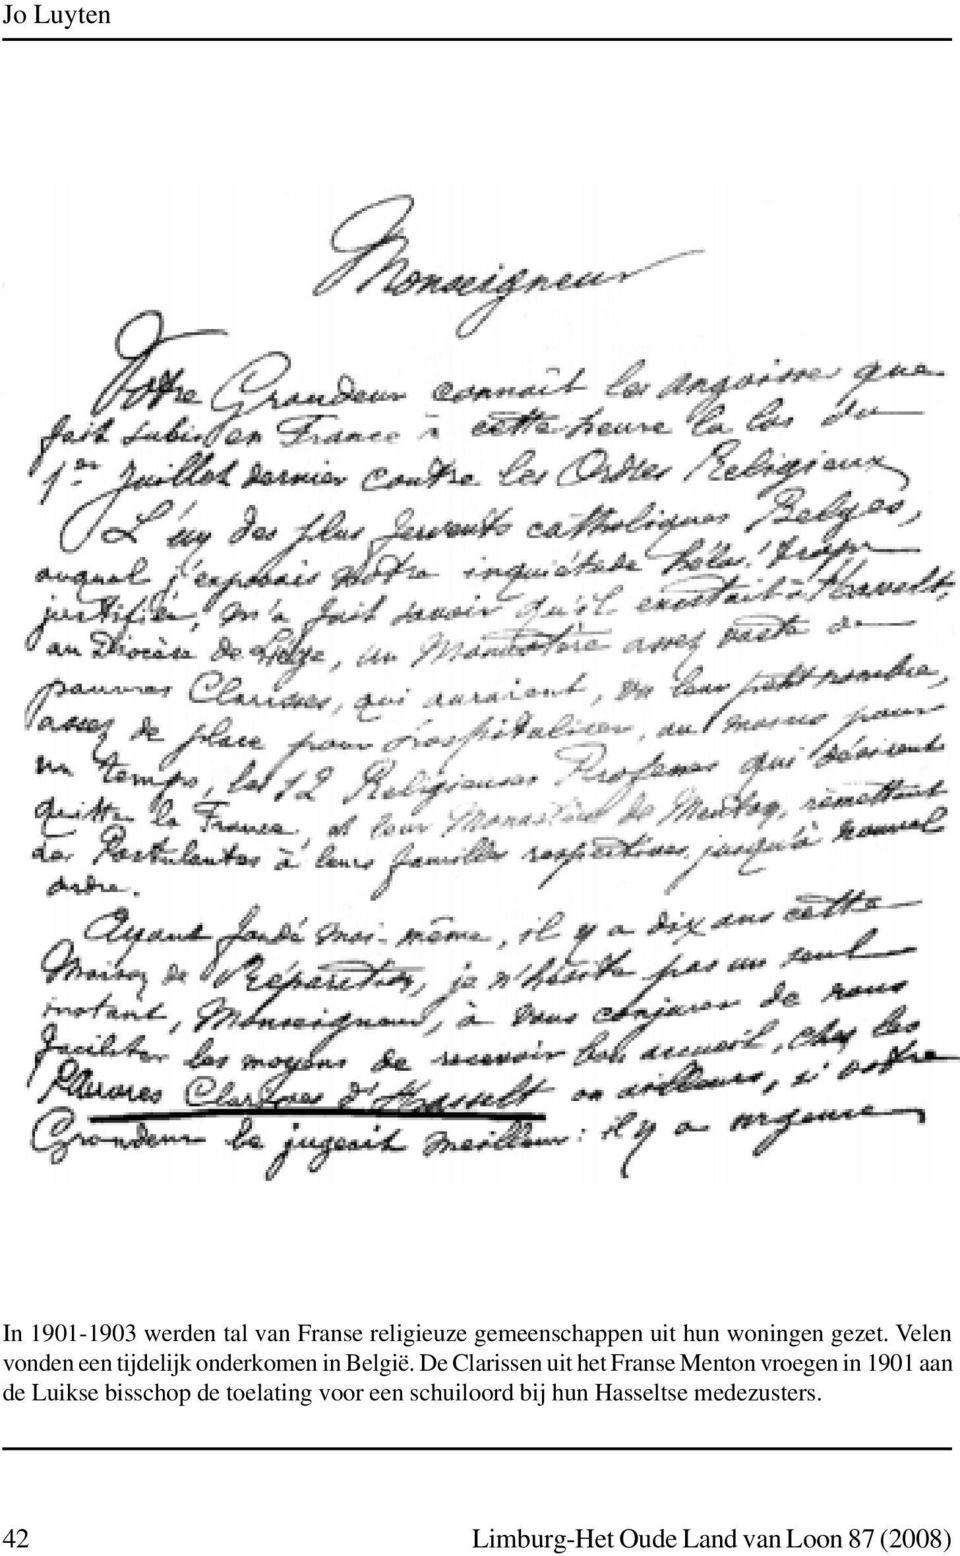 Jo Luyten
Monseigneur
Votre Grandeur connaît les angoisses que
fait subir en France à cette heure la loi du
1er Juillet dernier contre les Ordres Religieux
L'un des plus fervents catholiques Belges,
auquel j'exposais notre inquiétude hélas! trop
justifiée, m'a fait savoir qu'il existait à Hasselt,
au Diocèse de Liège, un Monastère assez vaste de
pauvres Clarisses, qui auraient, vu leur petit nombre,
assez de place pour hospitaliser, au moins pour
un temps, les 12 Religieuses Professes qui désirent
quitter la France, et leur Monastère de Menton, remettant
les Postulantes à leurs familles respectives, jusqu'à nouvel
ordre.
Ayant fondé moi-même, il y a dix ans cette
Maison de Réparation, je n'hésite pas un seul
instant, Monseigneur, à vous conjurer de nous
faciliter les moyens de recevoir bon accueil, chez les
Pauvres Clarisses d'Hasselt ou ailleurs, si votre
Grandeur le jugerait meilleur: il y a urgence
In 1901-1903 werden tal van Franse religieuze gemeenschappen uit hun woningen gezet. Velen
vonden een tijdelijk onderkomen in België. De Clarissen uit het Franse Menton vroegen in 1901 aan
de Luikse bisschop de toelating voor een schuiloord bij hun Hasseltse medezusters.
42 Limburg-Het Oude Land van Loon 87 (2008)